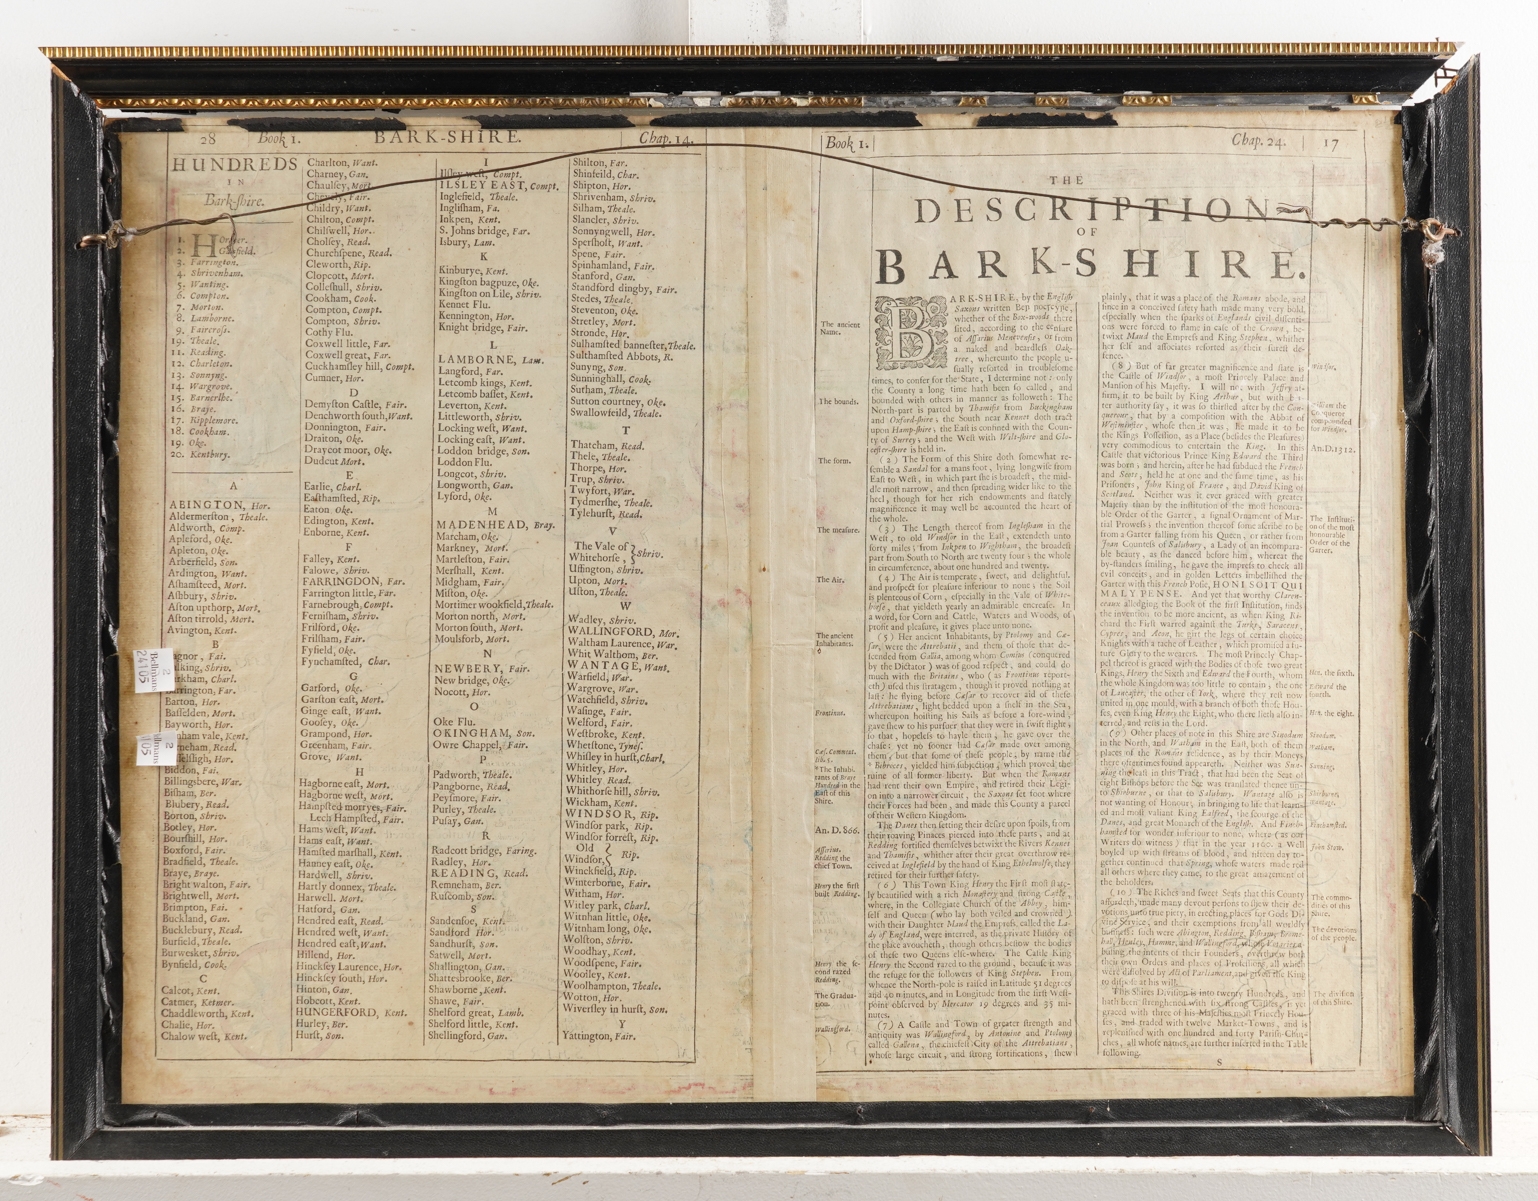 28 Book 1. BARK-SHIRE. Chap. 14.
HUNDREDS
IN
Bark-shire.
1. Hormer.
2. Ganfield.
3. Farrington.
4. Shrivenham.
5. Wanting.
6. Compton.
7. Morton.
8. Lamborne.
9. Faircross.
19. Theale.
11. Reading.
12. Charleton.
13. Sonnyng.
14. Wargrove.
15. Barnershe.
16. Braye.
17. Ripplemore.
18. Cookham.
19. Oke.
20. Kentbury.
A
ABINGTON, Hor.
Aldermerston, Theale.
Aldworth, Comp.
Apleford, Oke.
Apleton, Oke.
Arberfield, Son.
Ardington, Want.
Ashamsteed, Mort.
Ashbury, Shriv.
Aston upthorp, Mort.
Aston tirrold, Mort.
Avington, Kent.
B
Barton, Hor.
Basselden, Mort.
Bayworth, Hor.
Biddon, Fai.
Billingbere, War.
Bisham, Ber.
Blubery, Read.
Borton, Shriv.
Botley, Hor.
Bourshill, Hor.
Boxford, Fair.
Bradfield, Theale.
Braye, Braye.
Bright walton, Fair.
Brightwell, Mort.
Brimpton, Fai.
Buckland, Gan.
Bucklebury, Read.
Burfield, Theale.
Burwesket, Shriv.
Bynfield, Cook.
C
Calcot, Kent.
Catmer, Ketmer.
Chaddleworth, Kent.
Chalie, Hor.
Chalow west, Kent.
Charlton, Want.
Charney, Gan.
Chaulsey, Mort.
Childry, Want.
Chilton, Compt.
Chilswell, Hor.
Cholsey, Read.
Churchspene, Read.
Cleworth, Rip.
Clopcott, Mort.
Colleshull, Shriv.
Cookham, Cook.
Compton, Compt.
Compton, Shriv.
Cothy Flu.
Coxwell little, Far.
Coxwell great, Far.
Cuckhamsley hill, Compt.
Cumner, Hor.
D
Demyston Castle, Fair.
Denchworth south, Want.
Donnington, Fair.
Draiton, Oke.
Draycot moor, Oke.
Dudcut Mort.
E
Earlie, Charl.
Easthamsted, Rip.
Eaton Oke.
Edington, Kent.
Enborne, Kent.
F
Falley, Kent.
Falowe, Shriv.
FARRINGDON, Far.
Farrington little, Far.
Farnebrough, Compt.
Fernisham, Shriv.
Frilford, Oke.
Frilsham, Fair.
Fyfield, Oke.
Fynchamsted, Char.
G
Garford, Oke.
Garston east, Mort.
Ginge east, Want.
Goosey, Oke.
Grampond, Hor.
Greenham, Fair.
Grove, Want.
H
Hagborne east, Mort.
Hagborne west, Mort.
Hampsted morryes, Fair.
Lech Hampsted, Fair.
Hams west, Want.
Hams east, Want.
Hamsted marshall, Kent.
Hanney east, Oke.
Hardwell, Shriv.
Hartly donnex, Theale.
Harwell. Mort.
Hatford, Gan.
Hendred east, Read.
Hendred west, Want.
Hendred east, Want.
Hillend, Hor.
Hincksey Laurence, Hor.
Hincksey south, Hor.
Hinton, Gan.
Hobcott, Kent.
HUNGERFORD, Kent.
Hurley, Ber.
Hurst, Son.
I
Ilsley west, Compt.
ILSLEY EAST, Compt.
Inglefield, Theale.
Inglisham, Fa.
Inkpen, Kent.
S. Johns bridge, Far.
Isbury, Lam.
K
Kinburye, Kent.
Kingston bagpuze, Oke.
Kingston on Lile, Shriv.
Kennet Flu.
Kennington, Hor.
Knight bridge, Fair.
L
LAMBORNE, Lam.
Langford, Far.
Letcomb kings, Kent.
Letcomb basset, Kent.
Leverton, Kent.
Littleworth, Shriv.
Locking west, Want.
Locking east, Want.
Loddon bridge, Son.
Loddon Flu.
Longcot, Shriv.
Longworth, Gan.
Lyford, Oke.
M
MADENHEAD, Bray.
Marcham, Oke.
Markney, Mort.
Martleston, Fair.
Mershall, Kent.
Midgham, Fair.
Miston, Oke.
Mortimer wookfield, Theale.
Morton north, Mort.
Morton south, Mort.
Moulsforb, Mort.
N
NEWBERY, Fair.
New bridge, Oke.
Nocott, Hor.
O
Oke Flu.
OKINGHAM, Son.
Owre Chappel, Fair.
P
Padworth, Theale.
Pangborne, Read.
Peysmore, Fair.
Purley, Theale.
Pusay, Gan.
R
Radcott bridge, Faring.
Radley, Hor.
READING, Read.
Remneham, Ber.
Ruscomb, Son.
S
Sandenfoe, Kent.
Sandford Hor.
Sandhurst, Son.
Satwell, Mort.
Shallington, Gan.
Shattesbrooke, Ber.
Shawborne, Kent.
Shawe, Fair.
Shelford great, Lamb.
Shelford little, Kent.
Shellingford, Gan.
Shilton, Far.
Shinfeild, Char.
Shipton, Hor.
Shrivenham, Shriv.
Silham, Theale.
Slancler, Shriv.
Sonnyngwell, Hor.
Spersholt, Want.
Spene, Fair.
Spinhamland, Fair.
Stanford, Gan.
Standford dingby, Fair.
Stedes, Theale.
Steventon, Oke.
Stretley, Mort.
Stronde, Hor.
Sulhamsted bannester, Theale.
Sulthamsted Abbots, R.
Sunyng, Son.
Sunninghall, Cook.
Sutham, Theale.
Sutton courtney, Oke.
Swallowfeild, Theale.
T
Thatcham, Read.
Thele, Theale.
Thorpe, Hor.
Trup, Shriv.
Twyfort, War.
Tydmershe, Theale.
Tylehurst, Read.
V
The Vale of
Whitehorse, } Shriv.
Uffington, Shriv.
Upton, Mort.
Uston, Theale.
W
Wadley, Shriv.
WALLINGFORD, Mor.
Waltham Laurence, War.
Whit Waltham, Ber.
WANTAGE, Want.
Warfield, War.
Wargrove, War.
Watchfield, Shriv.
Wasinge, Fair.
Welford, Fair.
Westbroke, Kent.
Whetstone, Tynes.
Whistley in hurst, Charl.
Whitley, Hor.
Whitley Read.
Whithorse hill, Shriv.
Wickham, Kent.
WINDSOR, Rip.
Windsor park, Rip.
Windsor forrest, Rip.
Old
Windsor, } Rip.
Winckfield, Rip.
Winterborne, Fair.
Witham, Hor.
Witley park, Charl.
Witnhan little, Oke.
Witnham long, Oke.
Wolston, Shriv.
Woodhay, Kent.
Woodspene, Fair.
Woolley, Kent.
Woolhampton, Theale.
Wotton, Hor.
Wiversley in hurst, Son.
Y
Yattington, Fair.
Book 1. Chap. 24. 17
THE
DESCRIPTION
OF
BARK-SHIRE.
The ancient
Name.
The bounds.
The form.
The measure.
The Air.
The ancient
Inhabitants.
Frontinus.
An. D. 866.
Redding the
chief Town.
Henry the first
built Redding.
Henry the se-
cond razed
Redding.
The Gradua-
tion.
Wallingford.
BARK-SHIRE, by the English
Saxons written
whether of the Box-woods there
sited, according to the censure
of Asserius Menevensis, or from
a naked and beardless Oak-
tree, whereunto the people u-
sually resorted in troublesome
times, to confer for the State, I determine not: only
the County a long time hath been so called, and
bounded with others in manner as followeth: The
North-part is parted by Thamisis from Buckingham
and Oxford-shire; the South near Kennet doth tract
upon Hamp-shire; the East is confined with the Coun-
ty of Surrey; and the West with Wilt-shire and Glo-
cester-shire is held in.
(2) The Form of this Shire doth somewhat re-
semble a Sandal for a mans foot, lying longwise from
East to West, in which part she is broadest, the mid-
dle most narrow, and then spreading wider like to the
heel, though for her rich endowments and stately
magnificence it may well be accounted the heart of
the whole.
(3) The Length thereof from Inglesham in the
West, to old Windsor in the East, extendeth unto
forty miles; from Inkpen to Wightham, the broadest
part from South to North are twenty four; the whole
in circumference, about one hundred and twenty.
(4) The Air is temperate, sweet, and delightful.
and prospect for pleasure inferior to none; the Soil
is plenteous of Corn, especially in the Vale of White-
horse, that yieldeth yearly an admirable encrease. In
a word, for Corn and Cattle, Waters and Woods, of
profit and pleasure, it gives place unto none.
(5) Her ancient Inhabitants, by Ptolomy and Cæ-
sar, were the Attrebatii, and them of those that de-
scended from Gallia, among whom Comius (conquered
by the Dictator) was of good respect, and could do
much with the Britains, who (as Frontinus report-
eth) used this stratagem, though it proved nothing at
last: he flying before Cæsar to recover aid of these
Attrebatians, light bedded upon a shelf in the Sea,
whereupon hoisting his Sails as before a fore-wind,
gave shew to his pursuer that they were in swift flight;
so that, hopeless to hayle them, he gave over the
chase: yet no sooner had Cæsar made over among
them, but that some of these people, by name the
* Bibroces, yielded him subjection; which proved the
ruine of all former liberty. But when the Romans
had rent their own Empire, and retired their Legi-
on into a narrower circuit, the Saxons set foot where
their Forces had been, and made this County a parcel
of their Western Kingdom.
The Danes then setting their desire upon spoils, from
their roaving Pinaces pierced into these parts, and at
Redding fortified themselves betwixt the Rivers Kennet
and Thamisis, whither after their great overthrow re-
ceived at Inglefield by the hand of King Ethelwolfe, they
retired for their further safety.
(6) This Town King Henry the First most state-
ly beautified with a rich Monastery and strong Castle,
where, in the Collegiate Church of the Abbey, him-
self and Queen (who lay both veiled and crowned)
with their Daughter Maud the Empress, called the La-
dy of England, were interred, as the private History of
the place avoucheth, though others bestow the bodies
of these two Queens elsewhere. The Castle King
Henry the Second razed to the ground, because it was
the refuge for the followers of King Stephen. From
whence the North-pole is raised in Latitude 51 degrees
and 40 minutes, and in Longitude from the first West-
point observed by Mercator 19 degrees and 35 mi-
nutes.
(7) A Castle and Town of greater strength and
antiquity was Wallingford, by Antonine and Ptolomy
called Gallena, the chiefest City of the Attrebatians,
whose large circuit, and strong fortifications, shew
plainly, that it was a place of the Romans abode, and
since in a conceived safety hath made many very bold,
especially when the sparks of Englands civil dissenti-
ons were forced to flame in case of the Crown, be-
twixt Maud the Empress and King Stephen, whither
her self and associates resorted as their surest de-
fence.
(8) But of far greater magnificence and state is
the Castle of Windsor, a most Princely Palace and
Mansion of his Majesty. I will not, with Jeffry
him, it to be built by King Arthur, but with
ter authority say, it was so thirsted after by the Con-
queror, that by a composition with the Abbot of
Westminster, whose then it was, he made it to be
the Kings Possession, as a Place (besides the Pleasures)
very commodious to entertain the King. In this
Castle that victorious Prince King Edward the Third
was born; and herein, after he had subdued the French
and Scots, held he at one and the same time, as his
Prisoners, John King of France, and David King of
Scotland. Neither was it ever graced with greater
Majesty than by the institution of the most honoura-
ble Order of the Garter, a signal Ornament of Mar-
tial Prowess; the invention thereof some ascribe to be
from a Garter falling from his Queen, or rather from
Joan Countess of Salisbury, a Lady of an incompara-
ble beauty, as she danced before him, whereat the
by-standers smiling, he gave the impress to check all
evil conceits, and in golden Letters imbellished the
Garter with this French Posie, HONI SOIT QUI
MAL Y PENSE. And yet that worthy Claren-
ceaux alledging the Book of the first Institution, finds
the invention to be more ancient, as when King Ri-
chard the First warred against the Turks, Saracens,
Cypres, and Acon, he girt the legs of certain choice
Knights with a tache of Leather, which promised a fu-
ture Glory to the wearers. The most Princely Chap-
pel thereof is graced with the Bodies of those two great
Kings, Henry the Sixth and Edward the Fourth, whom
the whole Kingdom was too little to contain; the one
of Lancaster, the other of York, where they rest now
united in one mould, with a branch of both those Hou-
ses, even King Henry the Eight, who there lieth also in-
terred, and rests in the Lord.
(9) Other places of note in this Shire are Sinodum
in the North, and Watham in the East, both of them
places of the Romans residence, as by their Moneys
there oftentimes found appeareth. Neither was Sun-
ning the least in this Tract, that had been the Seat of
eight Bishops before the See was translated thence un-
to Shirburne, or that to Salisbury. Wantage also is
not wanting of Honour, in bringing to life that learn-
ed and most valiant King Ealfred, the scourge of the
Danes, and great Monarch of the English. And Finch-
hamsted for wonder inferiour to none, where (as our
Writers do witness) that in the year 1100. a Well
boyled up with streams of blood, and fifteen day to-
gether continued that Spring, whose waters made red
all others where they came, to the great amazement of
the beholders.
(10) The Riches and sweet Seats that this County
affordeth, made many devout persons to shew their de-
votions unto true piety, in erecting places for Gods Di-
vine Service, and their exemptions from all worldly
business: such were Abington, Redding, Bisham, Brome-
hall, Henley, Hamme, and Wallingford, whose
the intents of their Founders, overthrew both
their own Orders and places of Professions, all which
were dissolved by Act of Parliament, and given the King
to dispose at his will.
This Shires Division is into twenty Hundreds, and
hath been strengthened with six strong Castles, is yet
graced with three of his Majesties most Princely Hou-
ses, and traded with twelve Market-Towns, and is
replenished with one hundred and forty Parish-Chur-
ches, all whose names are further inserted in the Table
following.
S
Windsor.
An. D. 1312.
The Instituti-
on of the most
honourable
Order of the
Garter.
Hen. the sixth.
Edward the
fourth.
Hen. the eight.
Sinodum.
Watham.
Sunning.
John Stow.
The commo-
dities of this
Shire.
The devotions
of the people.
The division
of this Shire.
2
Bellmans
24105